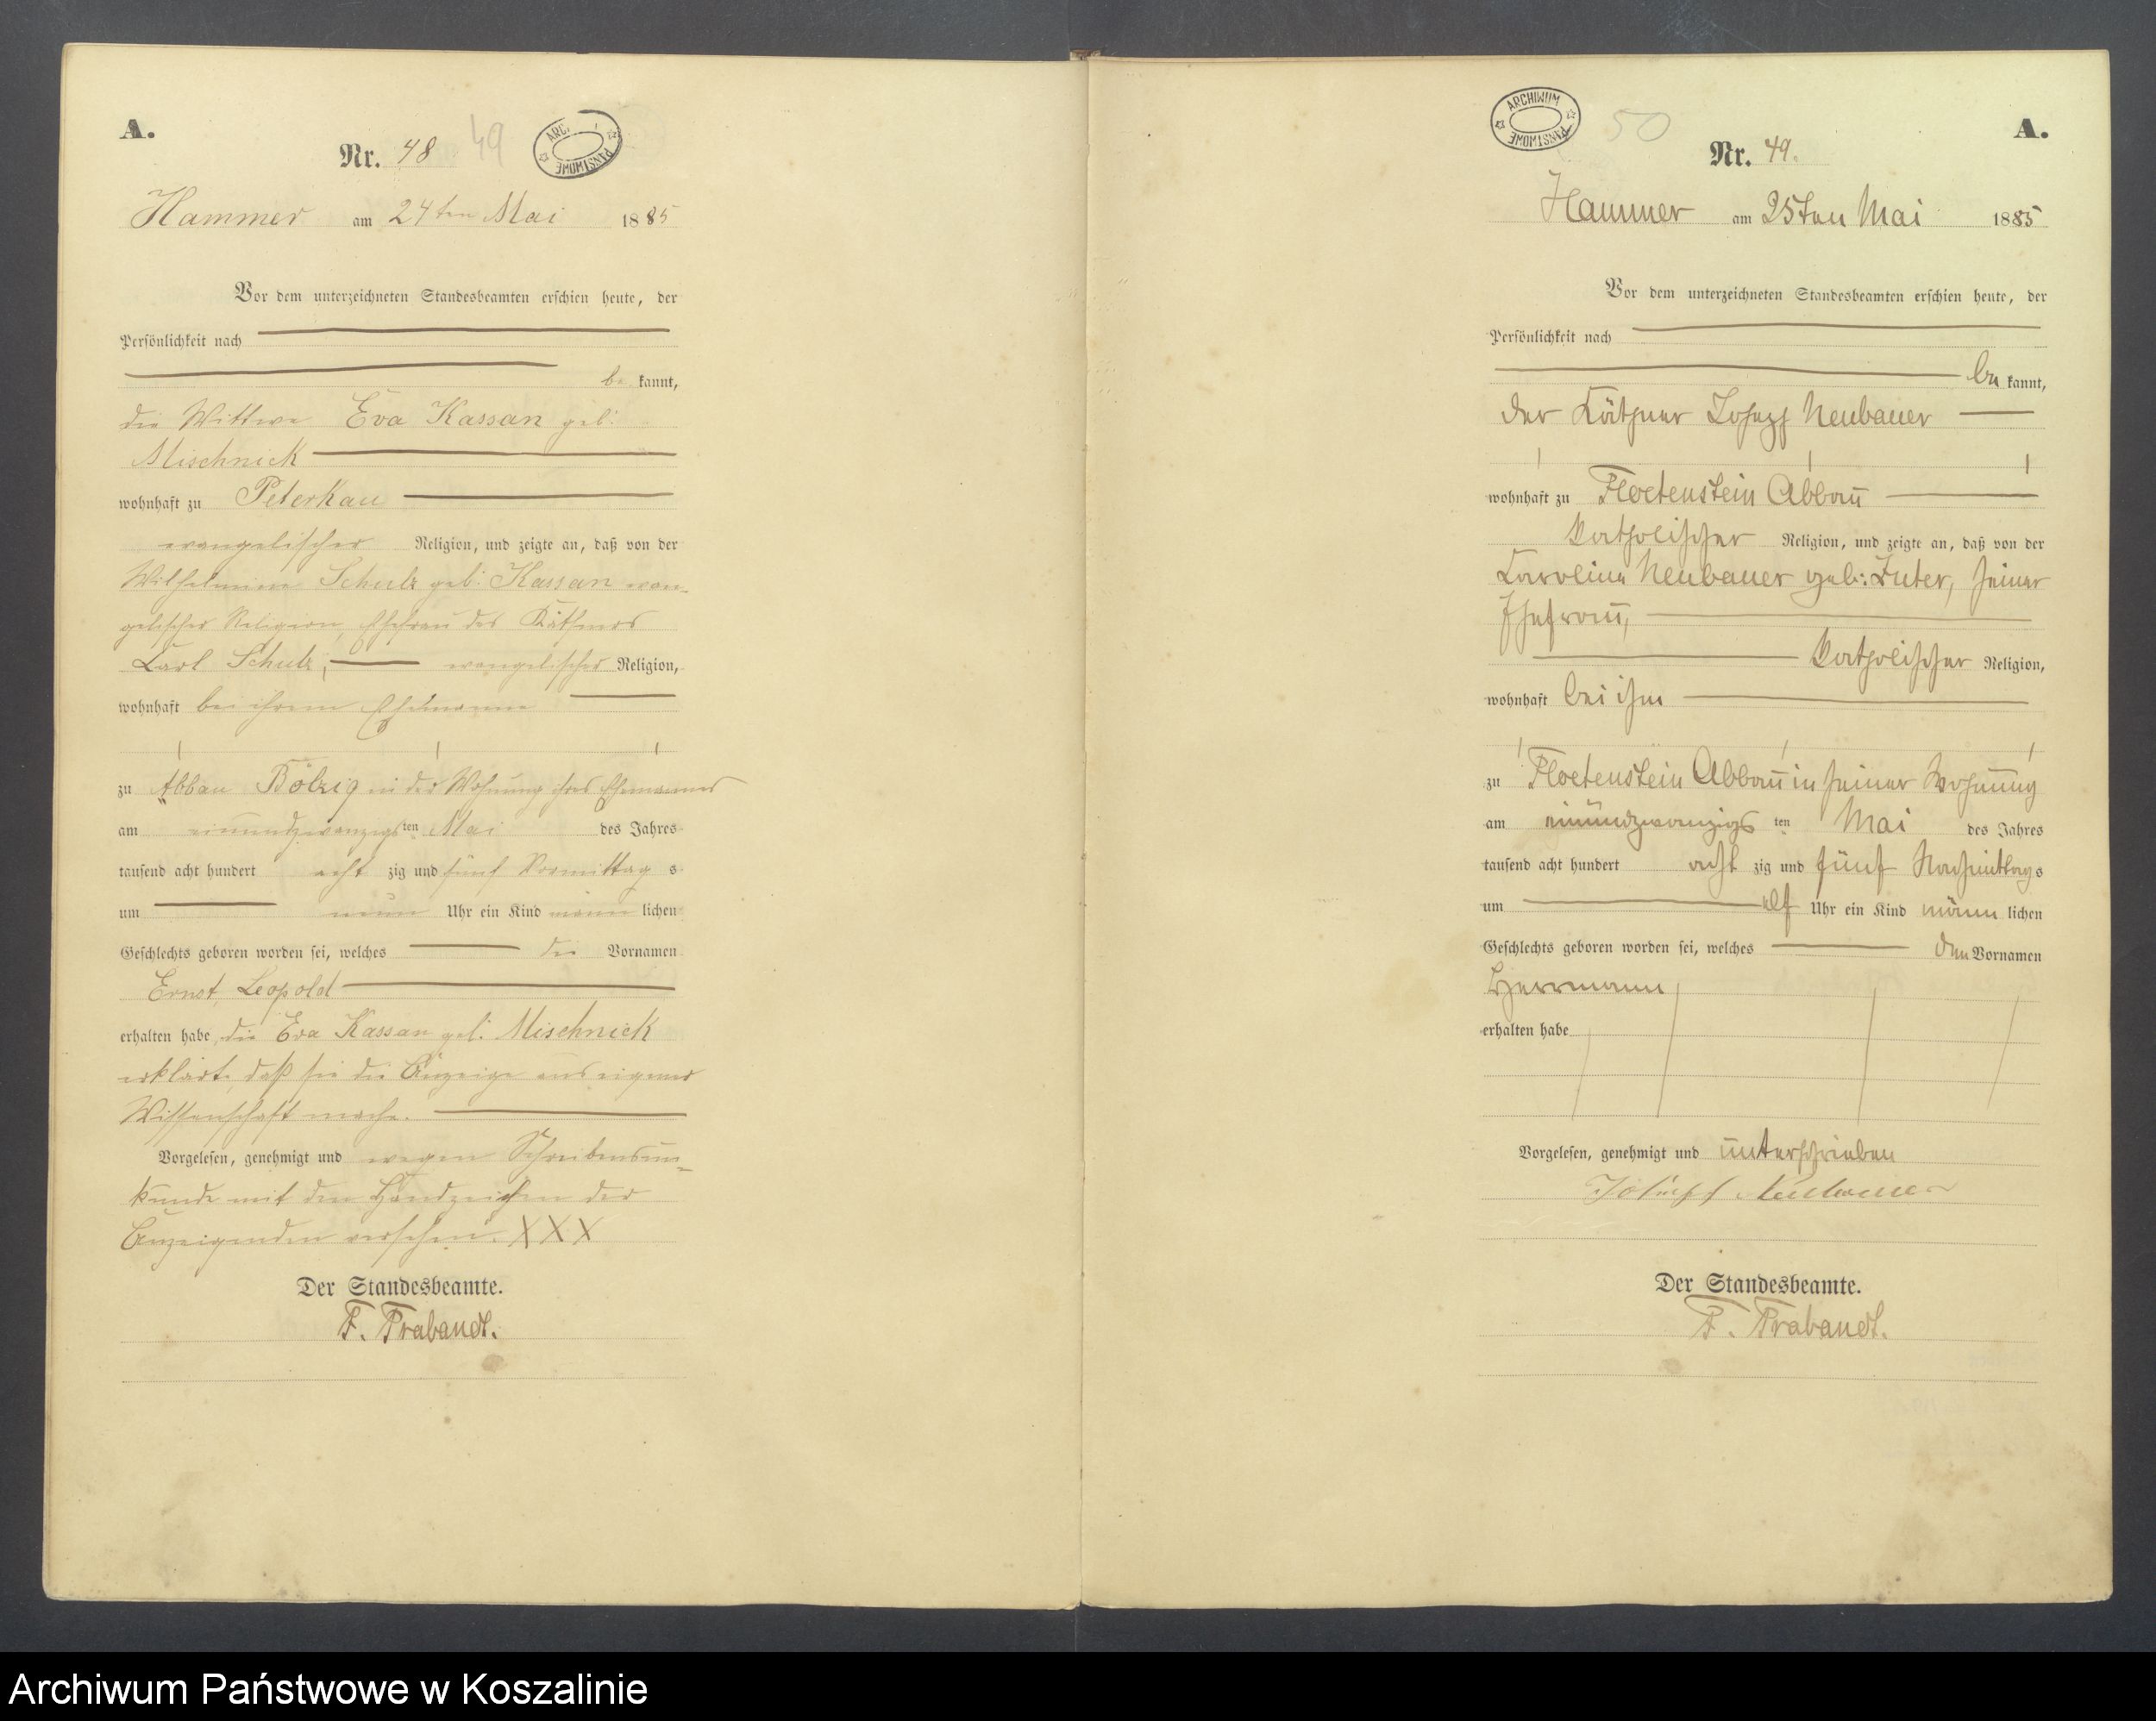 A.
Nr. 48 49
ARC. PAŃSTWOWE
Hammer am 24ten Mai 1885
Vor dem unterzeichneten Standesbeamten erschien heute, der
Persönlichkeit nach
be kannt,
die Wittwe Eva Kassan geb.
Mischnick
wohnhaft zu Peterkau
evangelischer Religion, und zeigte an, daß von der
Wilhelmine Schulz geb. Kassan evan-
gelischer Religion, Ehefrau des Käthners
Carl Schulz, evangelischer Religion,
wohnhaft bei ihrem Ehemanne
zu Abbau Bölzig in der Wohnung ihres Ehemannes
am einundzwanzigs ten Mai des Jahres
tausend acht hundert acht zig und fünf Vormittag s
um neun Uhr ein Kind männ lichen
Geschlechts geboren worden sei, welches die Vornamen
Ernst Leopold
erhalten habe, die Eva Kassan geb. Mischnick
erklärte, daß sie die Anzeige aus eigener
Wissenschaft mache.
Vorgelesen, genehmigt und wegen Schreibensun-
kunde mit den Handzeichen der
Anzeigenden versehen. XXX
Der Standesbeamte.
F. Prabandt.
ARCHIWUM PAŃSTWOWE
50
A.
Nr. 49.
Hammer am 25ten Mai 1885
Vor dem unterzeichneten Standesbeamten erschien heute, der
Persönlichkeit nach
be kannt,
der Käthner Joseph Neubauer
wohnhaft zu Floetenstein Abbau
katholischer Religion, und zeigte an, daß von der
Caroline Neubauer geb: Luter, seiner
Ehefrau,
katholischer Religion,
wohnhaft bei ihm
zu Floetenstein Abbau in seiner Wohnung
am einundzwanzigs ten Mai des Jahres
tausend acht hundert acht zig und fünf Nachmittag s
um elf Uhr ein Kind männ lichen
Geschlechts geboren worden sei, welches den Vornamen
Herrmann
erhalten habe
Vorgelesen, genehmigt und unterschrieben
Joseph Neubauer
Der Standesbeamte.
F. Prabandt.
Archiwum Państwowe w Koszalinie